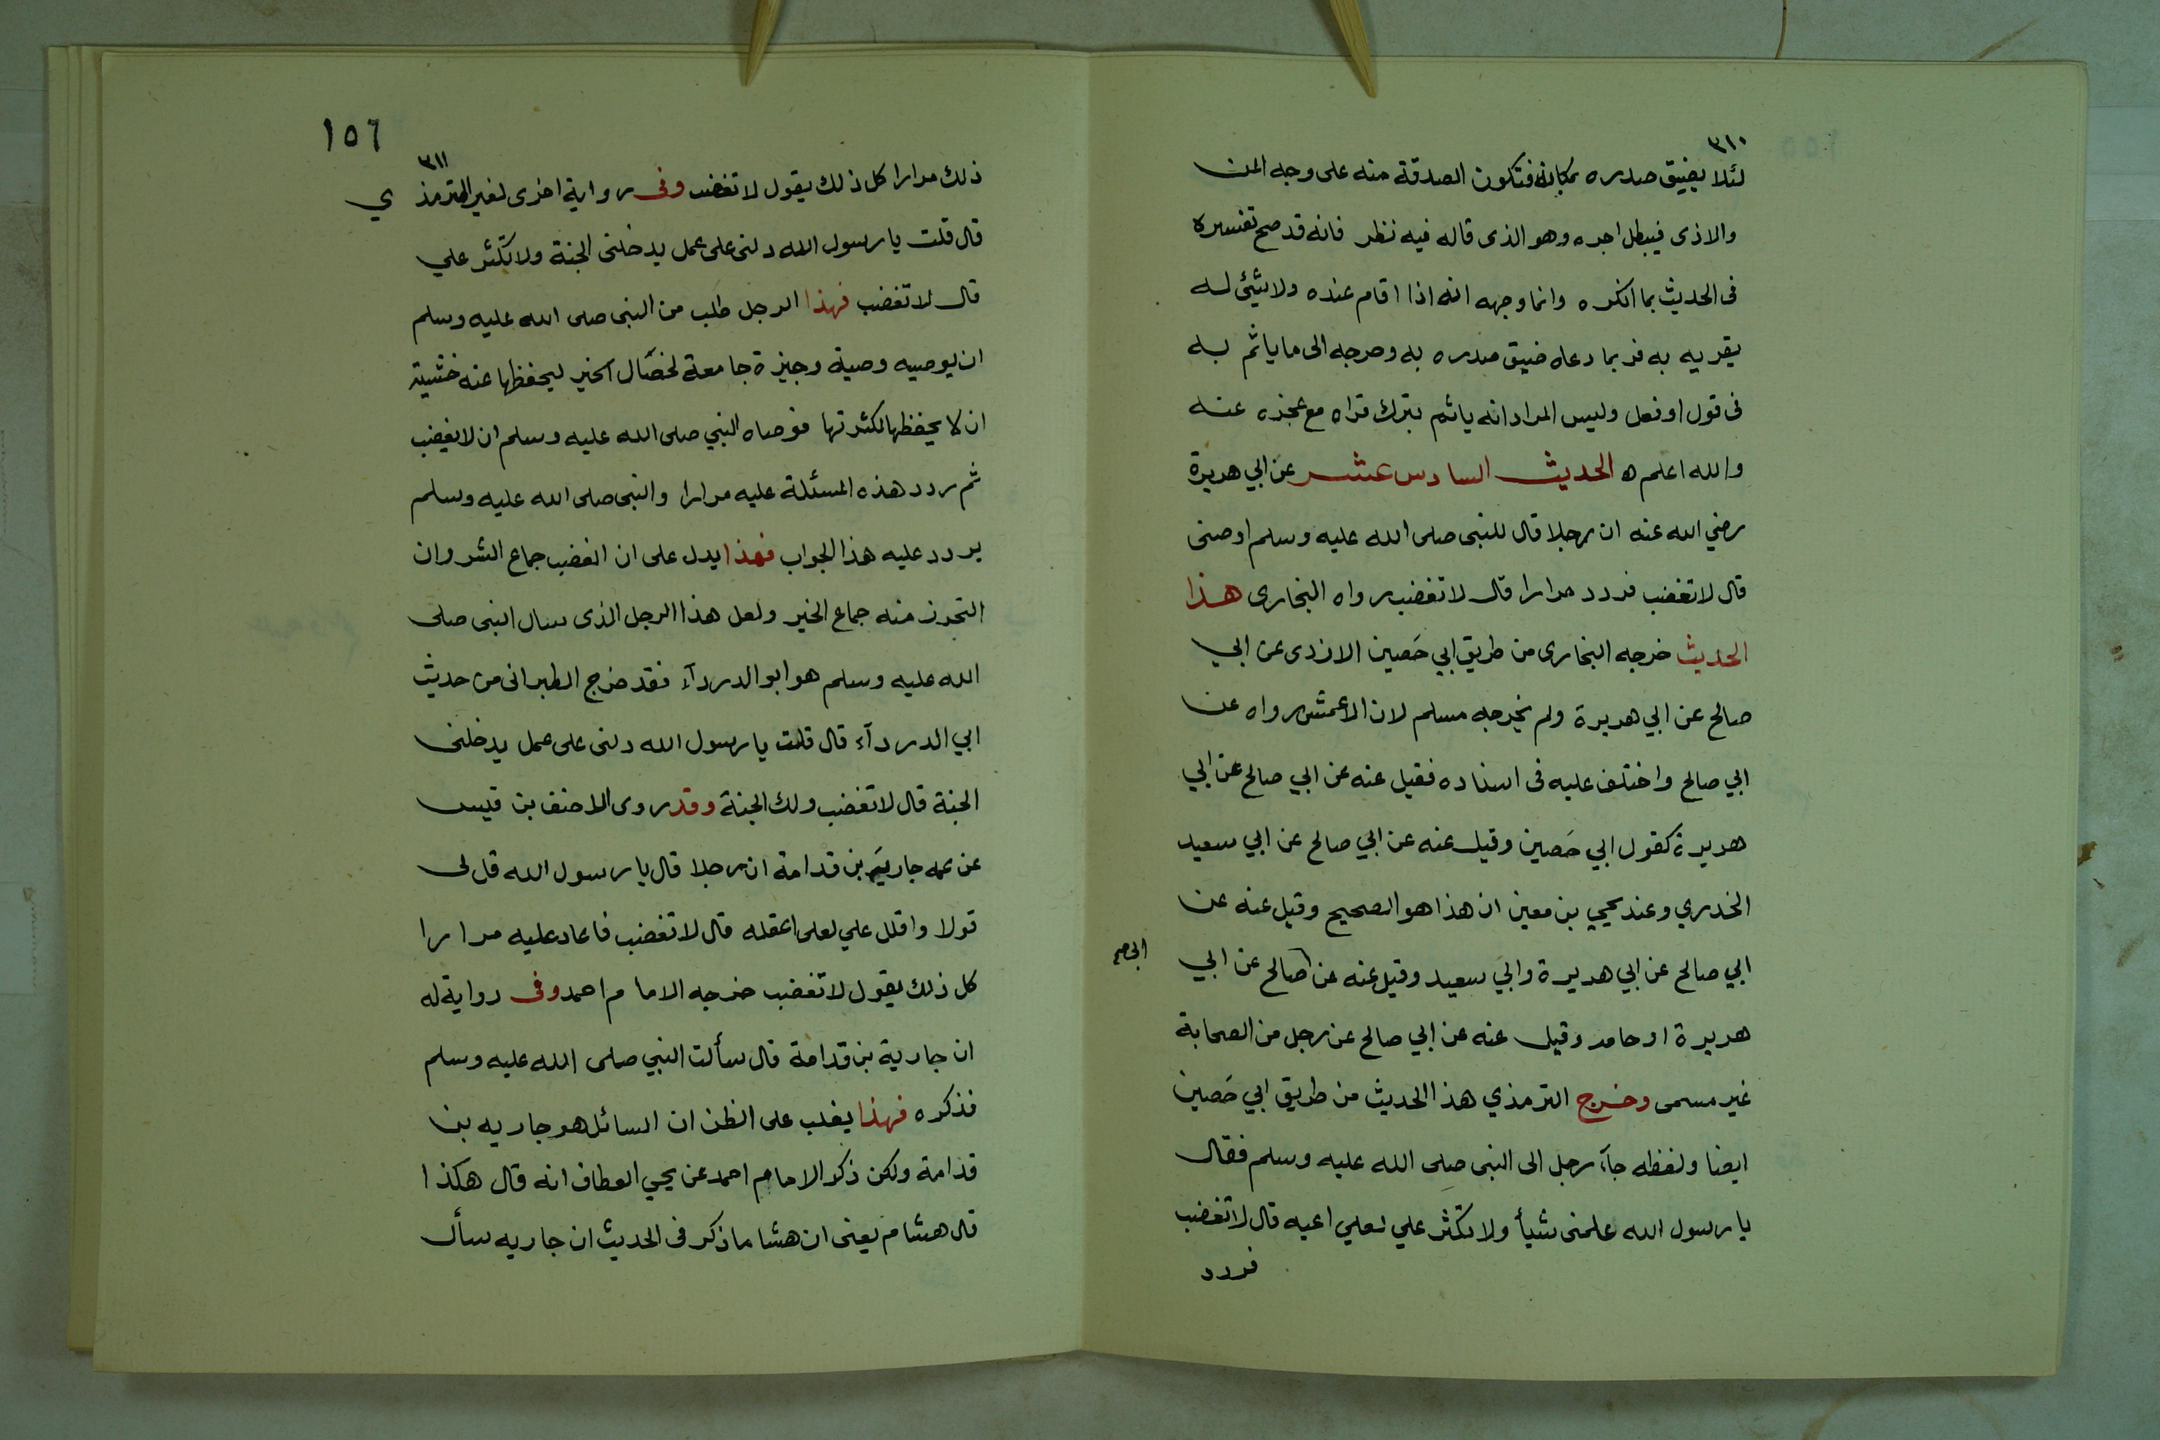 ٣١٠
لئلا يضيق صدره بمكانه فتكون الصدقة منه على وجه المن
والاذى فيبطل اجره وهو الذى قاله فيه نظر فانه قد صح تفسيره
فى الحديث بما انكره وانما وجهه انه اذا اقام عنده ولا شيئ له
يقريه به فربما دعاه ضيق صدره به وحرجه الى ما ياثم به
فى قول او فعل وليس المراد انه ياثم بترك قراه مع عجزه عنه
والله اعلم ه الحديث السادس عشر عن ابي هريرة
رضي الله عنه ان رجلا قال للنبى صلى الله عليه وسلم اوصنى
قال لا تغضب فردد مرارا قال لا تغضب رواه البخارى هذا
الحديث خرجه البخارى من طريق ابي حَصين الازدى عن ابي
صالح عن ابي هريرة ولم يخرجه مسلم لان الاعمش رواه عن
ابي صالح واختلف عليه فى اسناده فقيل عنه عن ابي صالح عن ابي
هريرة كقول ابي حَصين وقيل عنه عن ابي صالح عن ابي سعيد
الخدري وعند يحيي بن معين ان هذا هو الصحيح وقيل عنه عن
ابي صالح عن ابي هريرة وابي سعيد وقيل عنه عن صالح عن ابي
ابى صح
هريرة او حامد وقيل عنه عن ابي صالح عن رجل من الصحابة
غير مسمى وخرج الترمذي هذا الحديث من طريق ابي حَصين
ايضا ولفظه جآء رجل الى النبى صلى الله عليه وسلم فقال
يا رسول الله علمنى شيأ ولا تكثر علي لعلي اعيه قال لا تغضب
فردد
١٥٦
٣١١
ذلك مرارا كل ذلك يقول لا تغضب وفى رواية اخرى لغير الترمذي
قال قلت يا رسول الله دلنى على عمل يدخلنى الجنة ولا تكثر علي
قال لا تغضب فهذا الرجل طلب من النبى صلى الله عليه وسلم
ان يوصيه وصية وجيزة جامعة لخصال الخير ليحفظها عنه خشية
ان لا يحفظها لكثرتها فوصاه النبي صلى الله عليه وسلم ان لا يغضب
ثم ردد هذه المسئلة عليه مرارا والنبى صلى الله عليه وسلم
يردد عليه هذا الجواب فهذا يدل على ان الغضب جماع الشر وان
التحرز منه جماع الخير ولعل هذا الرجل الذى سال النبى صلى
الله عليه وسلم هو ابو الدردآء فقد خرج الطبرانى من حديث
ابي الدردآء قال قلت يا رسول الله دلنى على عمل يدخلنى
الجنة قال لا تغضب ولك الجنة وقد روى الاحنف بن قيس
عن عمه جارية بن قدامة ان رجلا قال يا رسول الله قل لى
قولا واقلل علي لعلى اعقله قال لا تغضب فاعاد عليه مرارا
كل ذلك يقول لا تغضب خرجه الامام احمد وفى رواية له
ان جارية بن قدامة قال سألت النبي صلى الله عليه وسلم
فذكره فهذا يغلب على الظن ان السائل هو جاريه بن
قدامة ولكن ذكر الامام احمد عن يحيي العطاف انه قال هكذا
قال هشام يعنى ان هشاما ذكر فى الحديث ان جاريه سأل